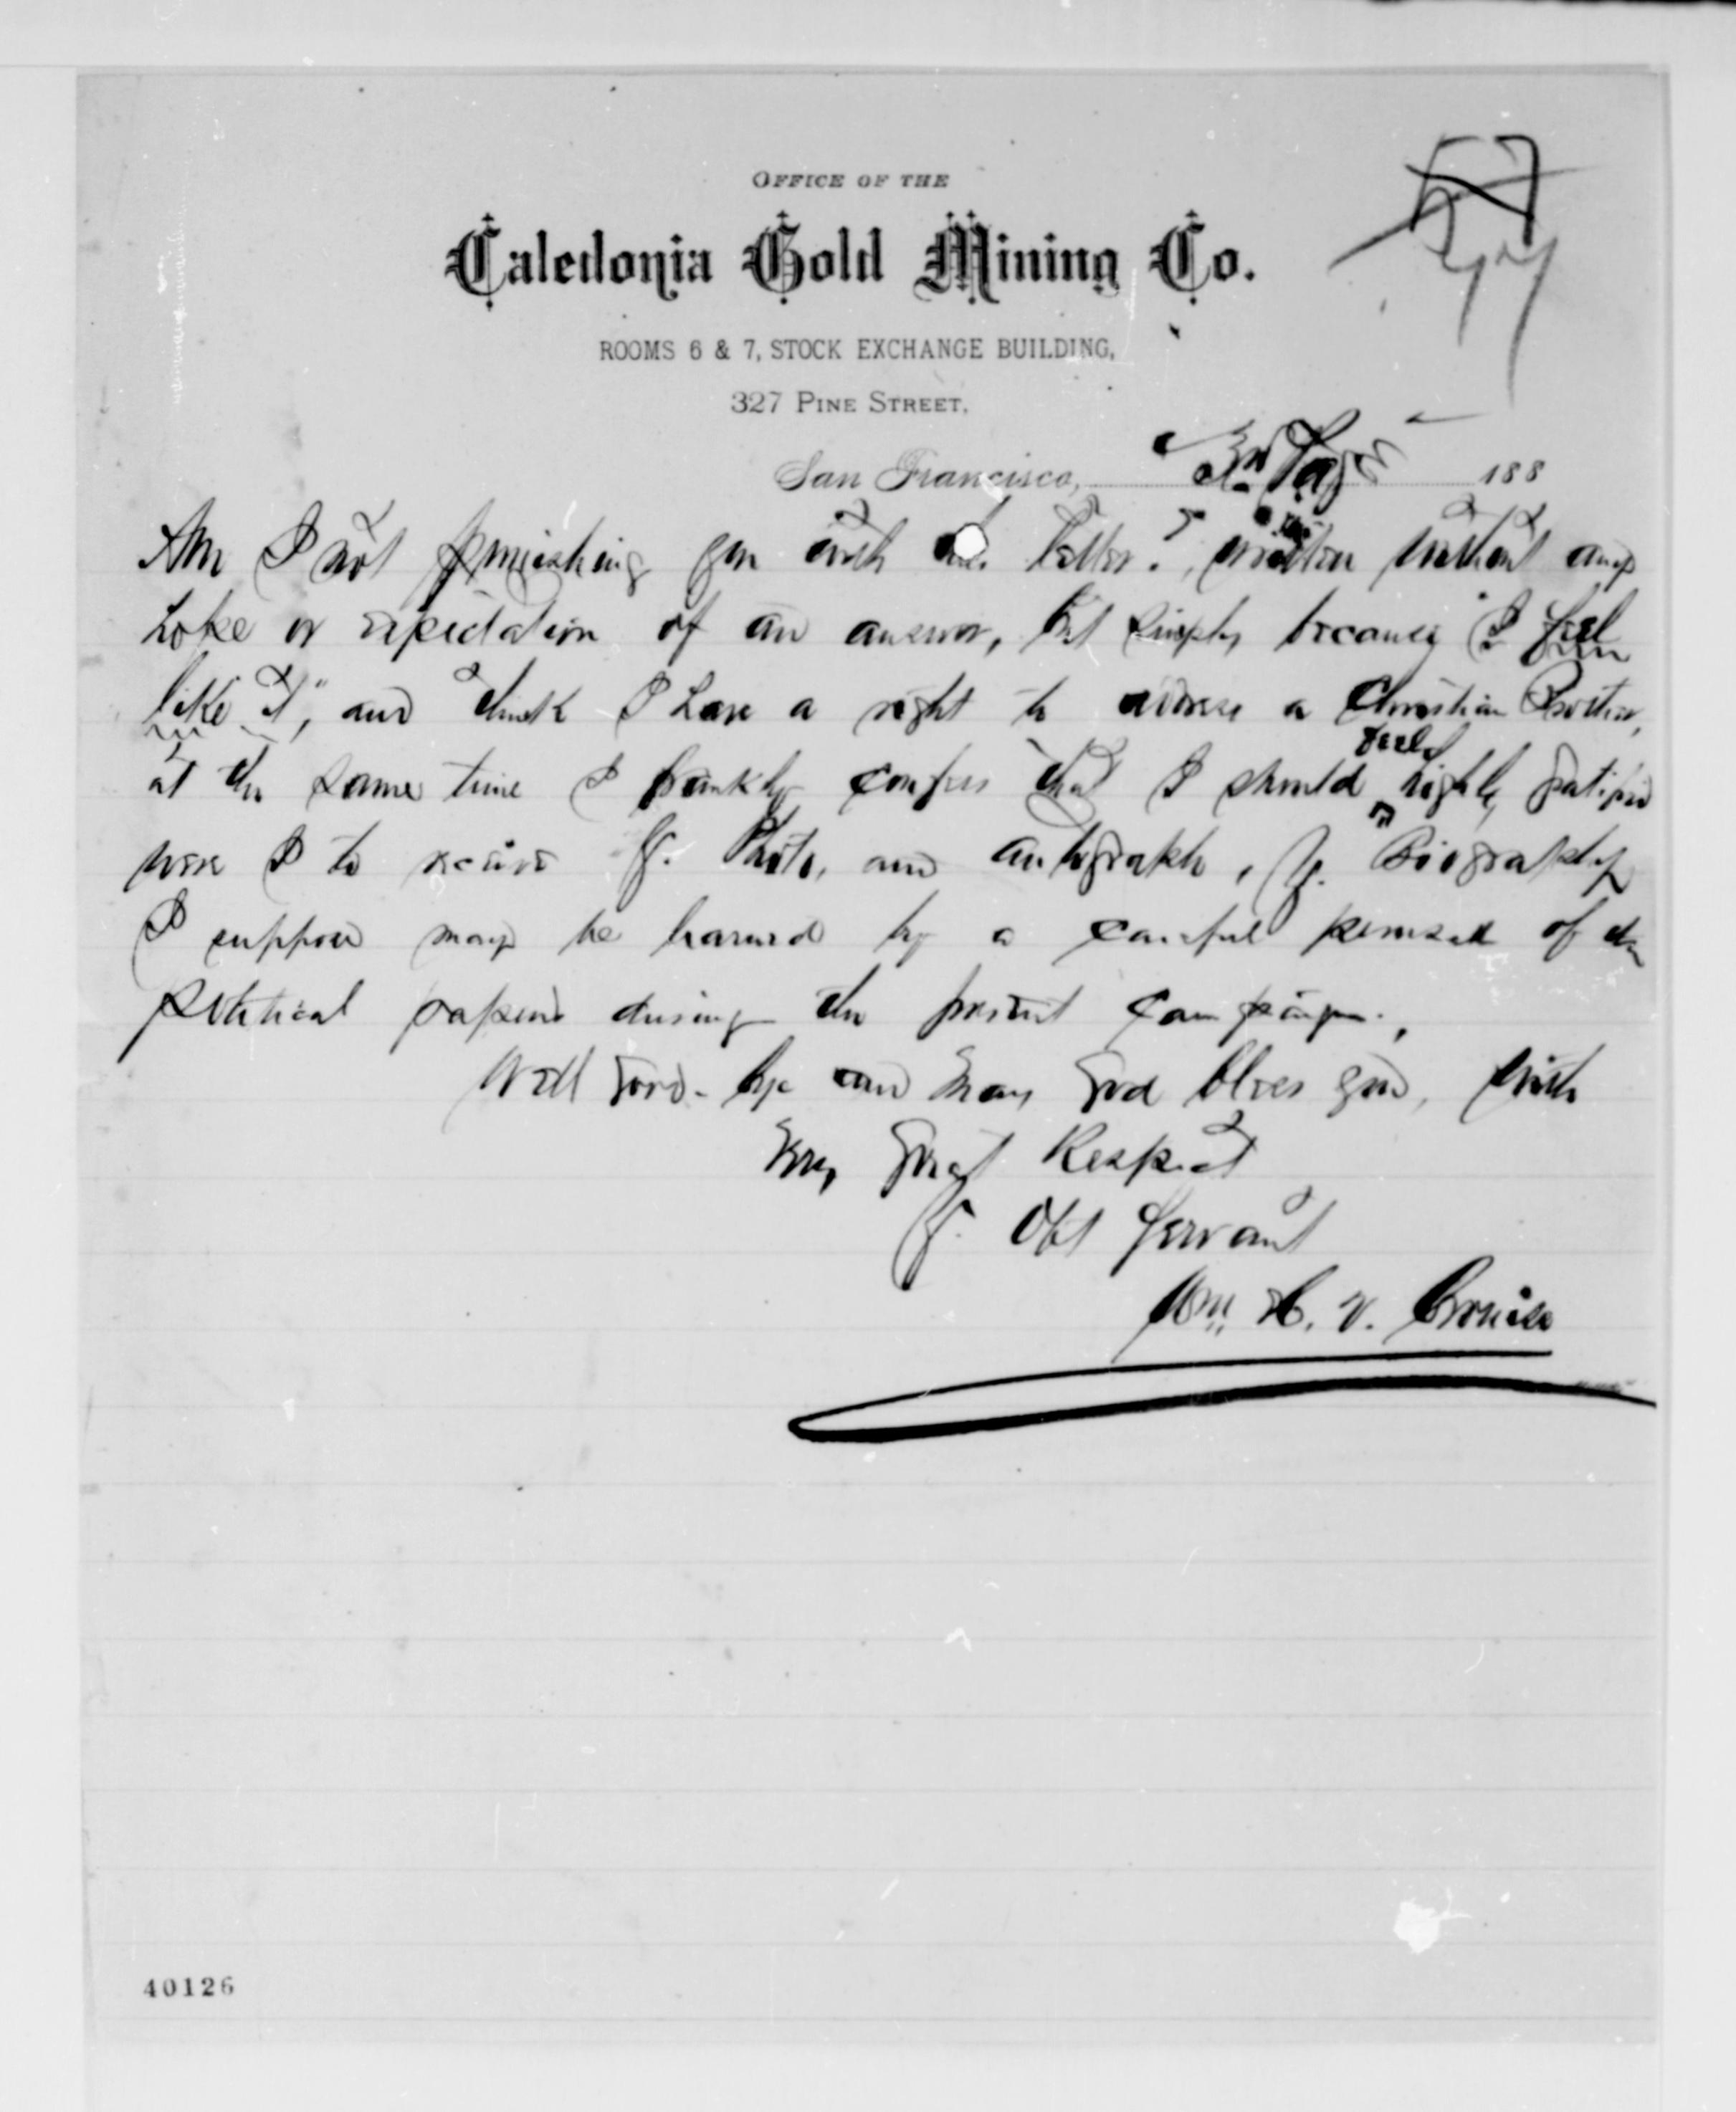 OFFICE OF THE
Caledonia Gold Mining Co.
ROOMS 6 & 7, STOCK EXCHANGE BUILDING,
327 PINE STREET,
San Francisco, 3rd Page 188
Am I not furnishing you with letter? , written without any
hope or expectation of an answer, but simply because "I feel
like it," and think I have a right to address a Christian Brother,
feel
at the same time I frankly confess that I should highly gratified
were I to receive Y. Photo, and autograph, Y. Biography
I suppose may be learned by a careful perusall of the
political papers during the present campaign.,
Well Good-bye and may God bless you, with
Very Great Respect
Y. Obt Servant
Wm H. V. Cronise
40126